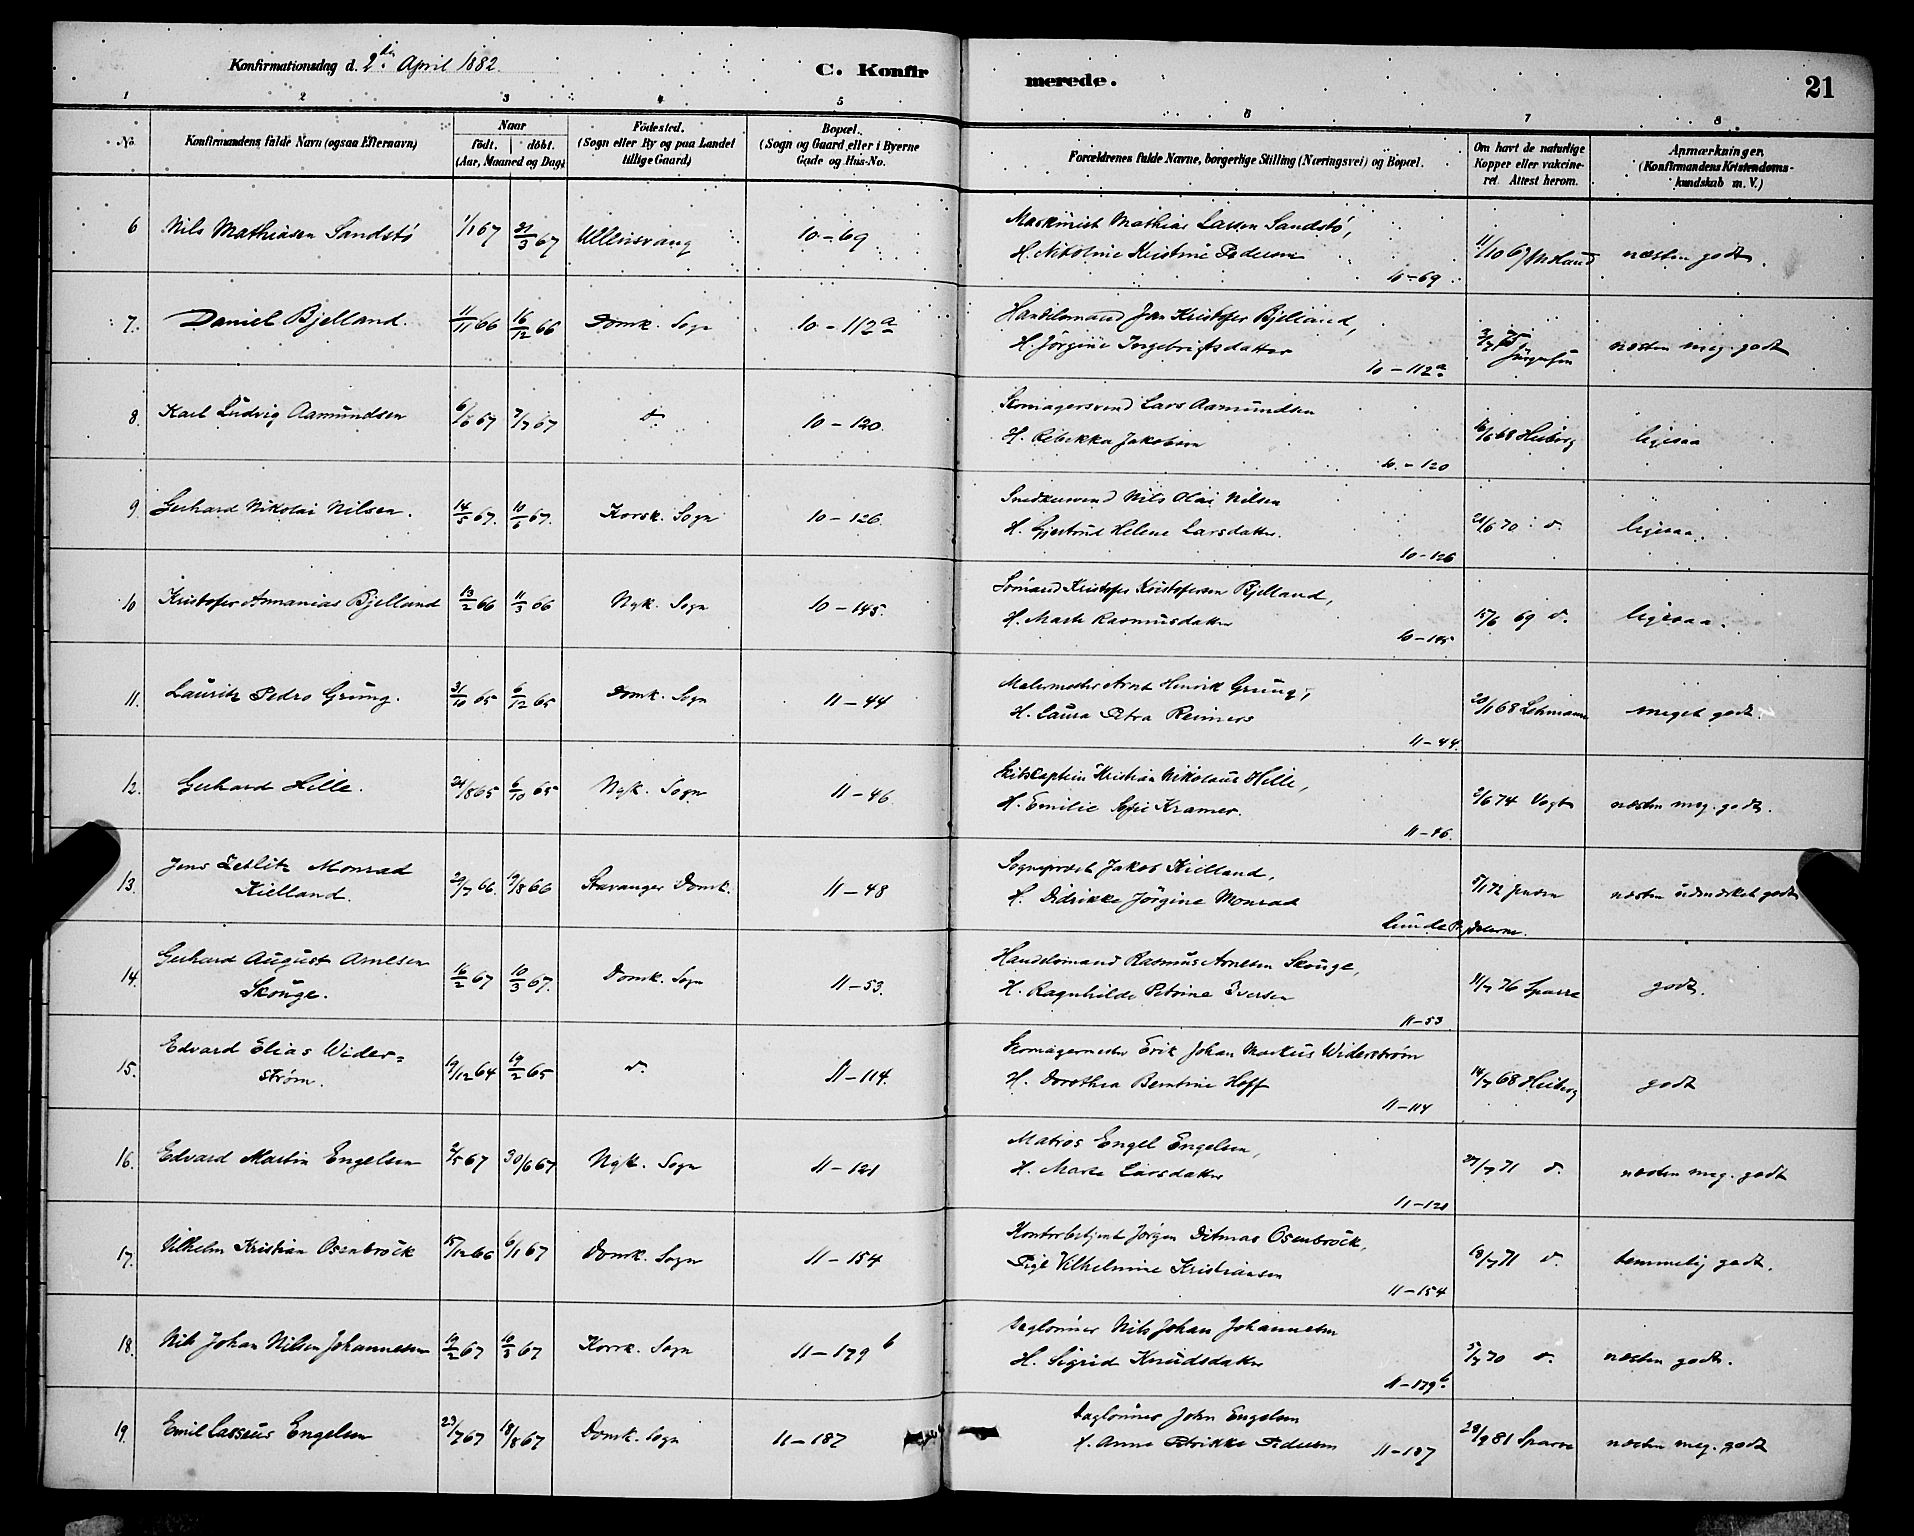 Konfirmationsdag d. 2den April 1882.
C. Konfirmerede.
21
1 2 3 4 5 6 7 8
No. Konfirmandens fulde Navn (ogsaa Efternavn) Naar födt. döbt. (Aar, Maaned og Dag) Födested. (Sogn eller By og paa Landet tillige Gaard) Bopæl. (Sogn og Gaard, eller i Byerne Gade og Hus-No. Forældrenes fulde Navne, borgerlige Stilling (Næringsvei) og Bopæl. Om havt de naturlige Kopper eller vakcineret. Attest herom. Anmærkninger. (Konfirmandens Kristendomskundskab m. V.)
6 Nils Mathiasen Sandstö 1/1 67 31/3 67 Ullensvang 10-69 Maskinist Mathias Larsen Sandstö,
H. Nikoline Kristine Pedersen
10-69 11/10 67 næsten godt.
7. Daniel Bjelland. 11/11 66 16/12 66 Domk. Sogn 10-112a Handelsmand Jan Kristofer Bjelland,
H. Jörgine Ingebrigtsdatter
10-112a. næsten meg. godt
8. Karl Ludvig Aamundsen 7/7 67 d. 10-120. Skomagersvend Lars Aamundsen
H. Rebekka Jakobsen
10-120 68 Heiberg ligesaa
9. Gerhard Nikolai Nilsen. 14/5 67. 10/6 67. Korsk. Sogn 10-126. Snedkersvend Nils Olai Nilsen
H. Gjertrud Helene Larsdatter.
10-126 21/6 70 d. ligesaa.
10 Kristofer Ammanias Bjelland 13/2 66 11/3 66 Nyk. Sogn 10-145. Sömand Kristofer Kristofersen Bjelland,
H. Marte Rasmusdatter
10-145 15/6 69 d. ligesaa.
11. Lauritz Pedro Grung. 31/10 65 6/12 65 Domk. Sogn 11-44 Malermester Arnt Henrik Grung,
H. Laura Petra Reimers
11-44. 68 Lehmann meget godt.
12. Gerhard Hille. 24/8 65 6/10 65 Nyk. Sogn 11-46 Skibskaptein Kristian Nikolaus Hille,
H. Emilie Sofie Kramer.
11-46. 2/6 74 Vogt næsten meg. godt.
13. Jens Zetlitz Monrad
Kielland. 29/7 66. 19/8 66 Stavanger Domk. 11-48 Sogneprest Jakob Kielland,
H. Didrikke Jörgine Monrad
Lunde 5/1 72 Jensen næsten udmærket godt
14. Gerhard August Arnesen
Skouge. 16/2 67 10/3 67. Domk. Sogn 11-53. Handelsmand Rasmus Arnesen Skouge,
H. Ragnhilde Petrine Iversen
11-53 11/7 76 Sparre godt.
15. Edvard Elias Wider=
ström. 19/12 64 19/2 65 d. 11-114. Skomagermester Erik Johan Markus Widerström
H. Dorothea Berntine Hoff
11-114 14/7 68 Heiberg godt
16. Edvard Martin Engelsen 2/5 67 30/6 67 Nyk. Sogn 11-121 Matros Engel Engelsen,
H. Marta Larsdatter
11-121 27/7 71 d. næsten meg. godt
17. Vilhelm Kristian Osenbröck 15/12 66 6/1 67 Domk. Sogn 11-154 Kontorbetjent Jörgen Ditmas Osenbröck,
Pige Vilhelmine Kristiansen
11-154 18/7 71 d. temmelig godt.
18. Nils Johan Nilsen Johannesen 19/2 67 10/3 67 Korsk. Sogn 11-179b Daglönner Nils Johan Johannesen
H. Sigrid Knudsdatter
11-179b. 5/7 70 d. næsten godt.
19. Emil Casseus Engelsen 23/7 67 18/8 67 Domk. Sogn 11-187 Daglönner John Engelsen
H. Anne Petrikke Pedersen 11-187 28/9 81 Sparre næsten meg. godt